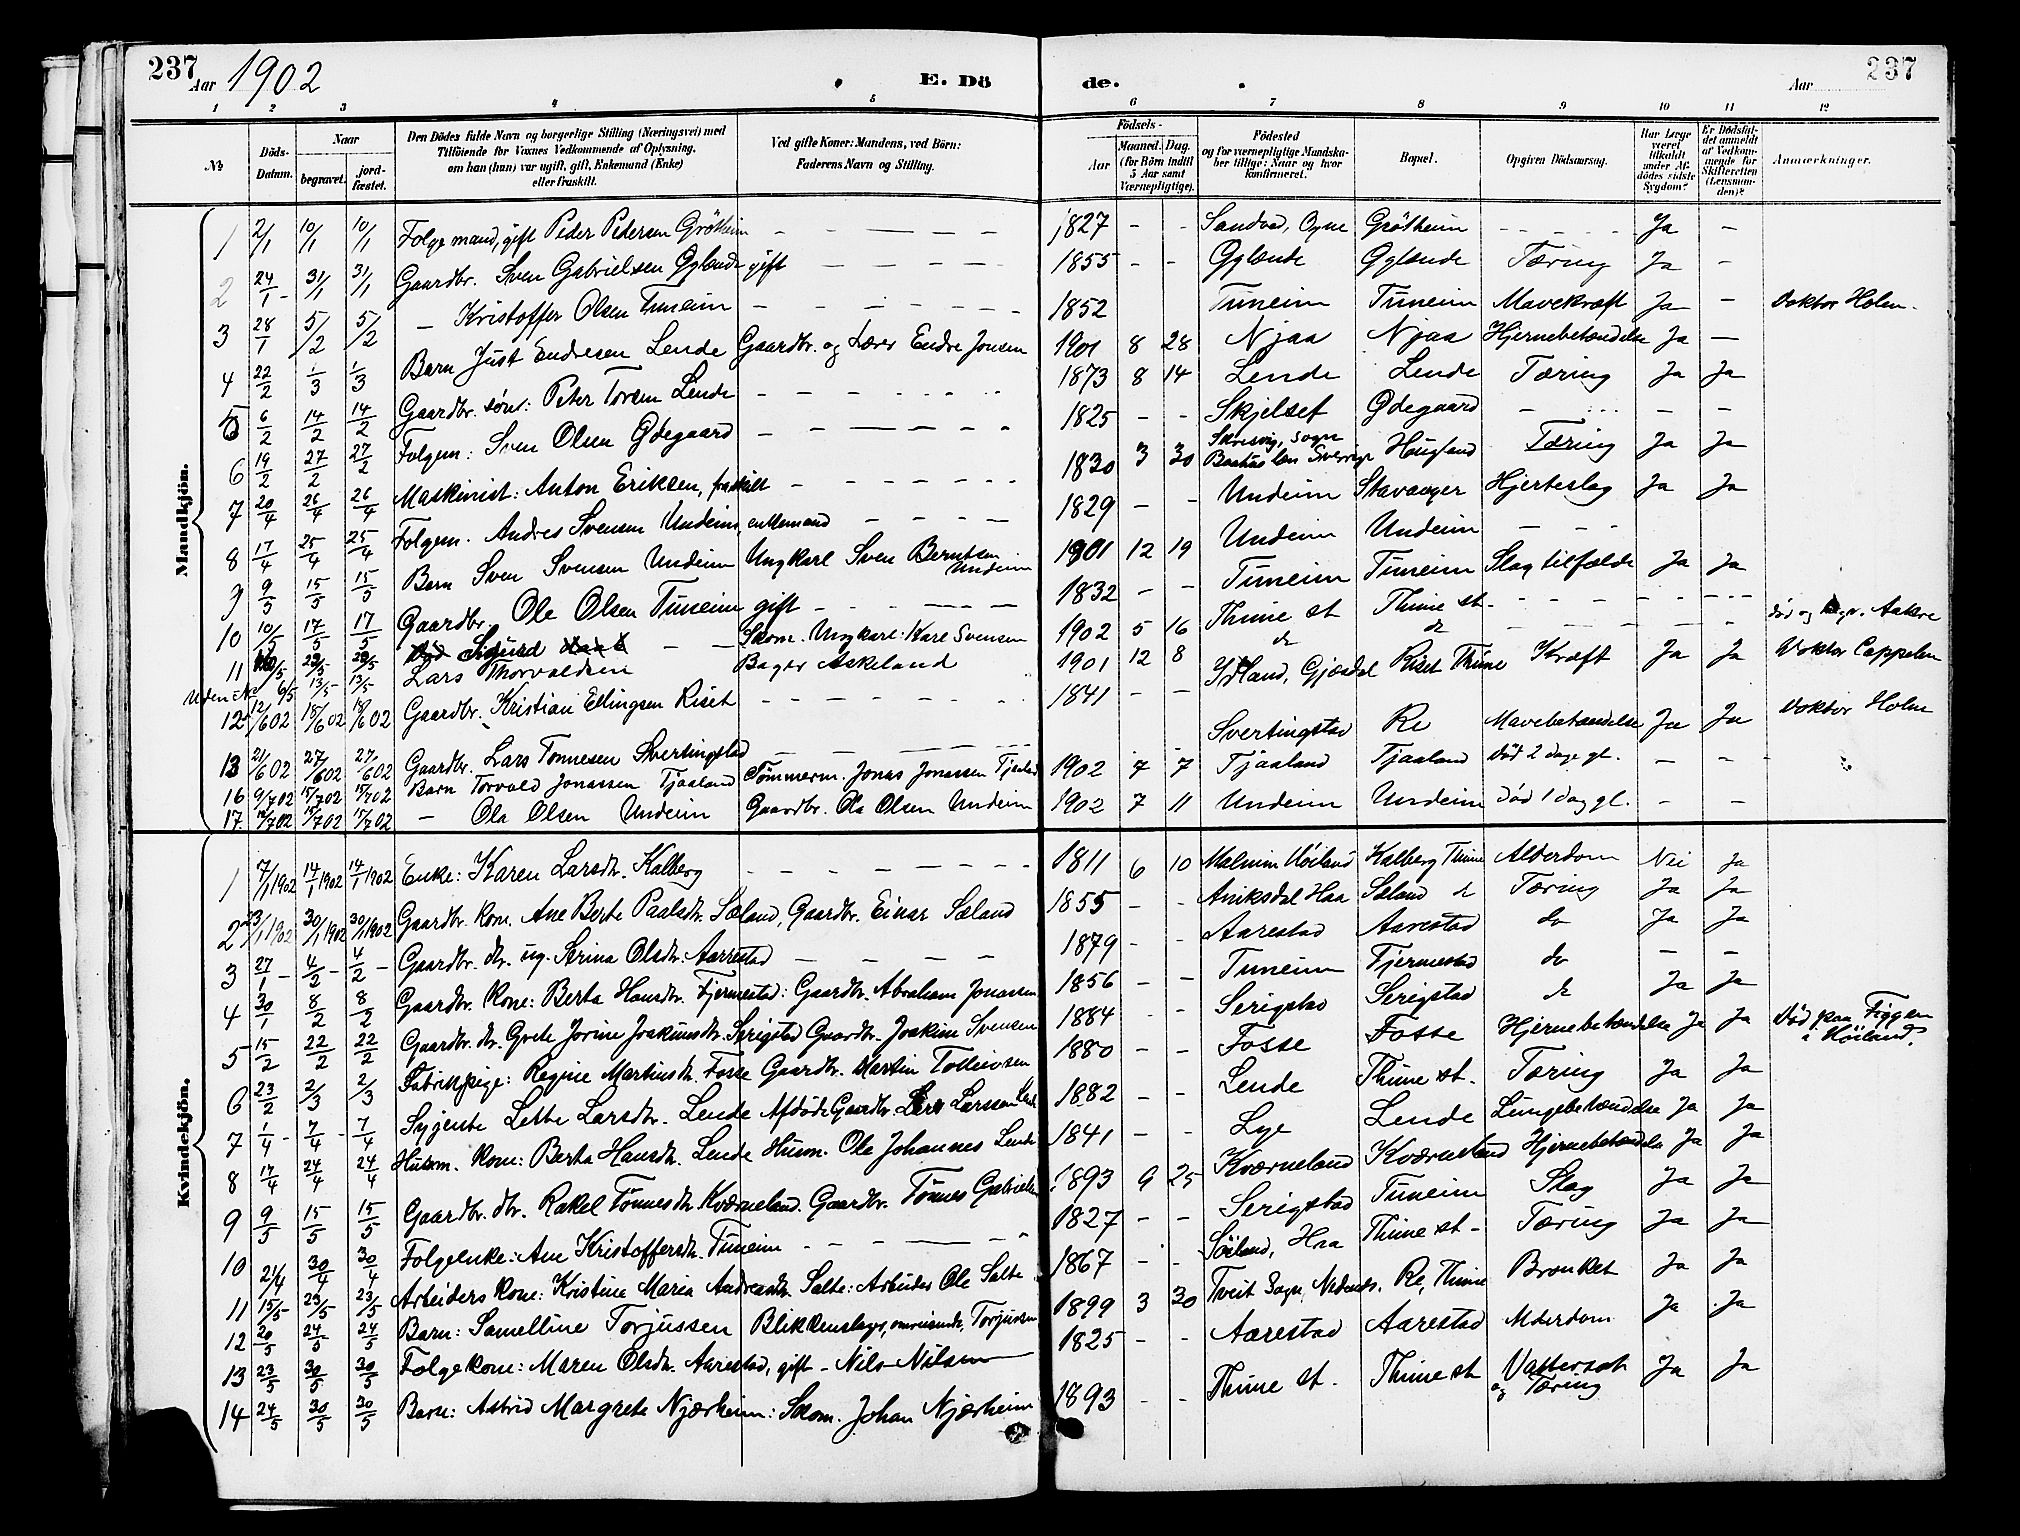 237 Aar 1902 E. Dö de. Aar 237
1 2 3 4 5 6 7 8 9 10 11 12
No. Döds-Datum. Naar begravet. jordfæstet. Den Dödes fulde Navn og borgerlige Stilling (Næringsvei) med Tilföiende for Voxnes Vedkommende af Oplysning, om han (hun) var ugift, gift, Enkemand (Enke) eller fraskilt. Ved gifte Koner: Mandens, ved Börn: Faderens Navn og Stilling. Födsels- Aar Maaned. Dag. (for Börn indtil 5 Aar samt Værnepligtige). Födested og for værnepligtige Mandskaber tillige: Naar og hvor konfirmeret. Bopæl. Opgiven Dödsaarsag. Har Læge været tilkaldt under Afdödes sidste Sygdom? Er Dödsfaldet anmeldt af Vedkommende for Skifteretten (Lensmanden)? Anmærkninger.
Mandkjön.
1 2/1 10/1 10/1 Folgemand, gift Peder Pedersen Grötheim - - - - - 1827 - - Sandvad, Ogne Grötheim - - - - Ja -
2 24/1 - 31/1 31/1 Gaardbr. Sven Gabrielsen Gylande gift - - - - 1855 - - Gylande Gylande Tæring Ja -
3 28/1 5/2 5/2 - Kristoffer Olsen Tuneim - - - - - 1852 Tuneim Tuneim Mavekræft Ja - Doktor Holm.
4 22/2 1/3 1/3 Barn Just Endresen Lende Gaardbr. og Lærer Endre Jonsen 1901 8 28 Njaa Njaa Hjernebetændelse Ja -
5 6/2 14/2 14/2 Gaardbr. søns: Peter Torsen Lende - - - - - 1873 8 14 Lende Lende Tæring Ja Ja
6 19/2 27/2 27/2 Folgem: Sven Olsen Ødegaard - - - - - 1825 - - Skjelsef Ødegaard - - - -
7 20/4 26/4 26/4 Maskinist: Anton Eriksen, fraskilt - - - - - 1830 3 30 sogn Baahus len Sverrige Haugland Tæring Ja Ja
8 17/4 25/4 25/4 Folgem. Andres Svensen Undeim, enkemand - - - - 1829 - - Undeim Stavanger Hjerteslag Ja Ja
9 9/5 15/5 15/5 Barn Sven Svensen Undeim Ungkarl Sven Berntsen Undeim 1901 12 19 Undeim Undeim - - -
10 10/5 17/5 17/5 Gaardbr. Ole Olsen Tuneim gift - - - - - 1832 - - Tuneim Tuneim Slagtilfælde Ja Ja
11 20/5 23/5 23/5 Sigurd - - Skom. Ungkarl: Karl Svensen 1902 5 16 Thime st Thime st. - - - - - -
Uden No 6/5 13/5 13/5 Lars Thorvaldsen Bager Askeland 1901 12 8 do do - - - - død og begr. Aakre
12 12/6 02 18/6 02 18/6 02 Gaardbr. Kristian Ellingsen Riset - - - - - 1841 - - Gjæsdal Riset Thime Kræft Ja Ja Doktor Cappelen
13 21/6 02 27/6 02 27/6 02 Gaardbr. Lars Tønnesen Svertingstad - - - - - - - Svertingstad Re Mavebetændelse Ja Ja Doktor Holm
16 9/7 02 15/7 02 15/7 02 Barn Torvald Jonassen Tjaaland Tømmerm. Jonas Jonassen Tjaaland 1902 7 7 Tjaaland Tjaaland Død 2 dage gl. - -
17. 12/7 02 15/7 02 15/7 02 - Ola Olsen Undeim Gaardbr. Ola Olsen Undeim 1902 7 11 Undeim Undeim død 1 dag gl. - -
Kvindekjön.
1 7/1 1902 14/1 1902 14/1 1902 Enke: Karen Larsdtr. Kalberg - - - - - - 1811 6 10 Malmim Höiland Kalberg Thime Alderdom Nei Ja
2 23/1 1902 30/1 1902 30/1 1902 Gaardbr. kone. Ane Berte Paalsdtr. Sæland, Gaardbr. Einar Sæland 1855 - - Aniksdal Haa Sæland do Tæring Ja Ja
3 27/1 - 4/2 - 4/2 - Gaardbr. dtr. ug. Serina Olsdtr: Aarrestad - - - - 1879 - - Aarestad Aarestad do Ja Ja
4 30/1 8/2 8/2 Gaardbr. kone: Berta Hansdtr. Fjermestad: Gaardbr. Abraham Jonassen 1856 - - Tuneim Fjermestad do - -
5 15/2 22/2 22/2 Gaardbr. dtr. Grete Jorine Joakimsdtr. Serigstad Gaardbr. Joakim Svensen 1884 - - Serigstad Serigstad do Ja Ja
6 23/2 2/3 2/3 Fabrikpige: Regine Martinsdtr. Fosse Gaardbr. Martin Tolleivsen 1880 - - Fosse Fosse Hjernebetændelse Ja Ja Død paa Figgen i Höiland.
7 1/4 - 7/4 - 7/4 Syjente Lette Larsdtr. Lende Afdöde Gaardbr. Lars Larssen Lende 1882 - - Lende Thime st. Tæring Ja Ja
8 17/4 24/4 24/4 Husm. kone: Berta Hansdtr. Lende Husm. Ole Johannes Lende 1841 - - Lye Lende Lungebetændelse Ja Ja
9 9/5 15/5 15/5 Gaardbr. dtr. Rakel Tönnesdtr. Kværneland. Gaardbr. Tönnes Gabrielsen 1893 9 25 Kværneland Kværneland Hjernebetændelse Ja Ja
10 21/4 30/4 30/4 Folgeenke: Ane Kristoffersdtr. Tuneim - - - - - 1827 - - Serigstad Tuneim Slag Ja Ja
11 15/5 23/5 23/5 Arbeiders kone: Kristine Maria Andreasdtr. Salte: Arbeider Ole Salte 1867 - - Söiland, Haa Thime st - Tæring Ja Ja
12 20/5 24/5 24/5 Barn: Samelline Torjussen Blikkenslager, omreisende, Torjussen 1899 3 30 Tveit Sogn, Nedenæs. Re, Thime Bronket Ja Ja
13 23/5 30/5 30/5 Folgekone: Maren Olsdtr. Aarestad, gift - Nils Nilsen 1825 - - Aarestad Aarestad Alderdom Ja Ja
14 24/5 30/5 30/5 Barn: Astrid Margrete Njærheim: Skom. Johan Njærheim 1893 - - Thime st. Thime st Vattersot og Tæring Ja Ja